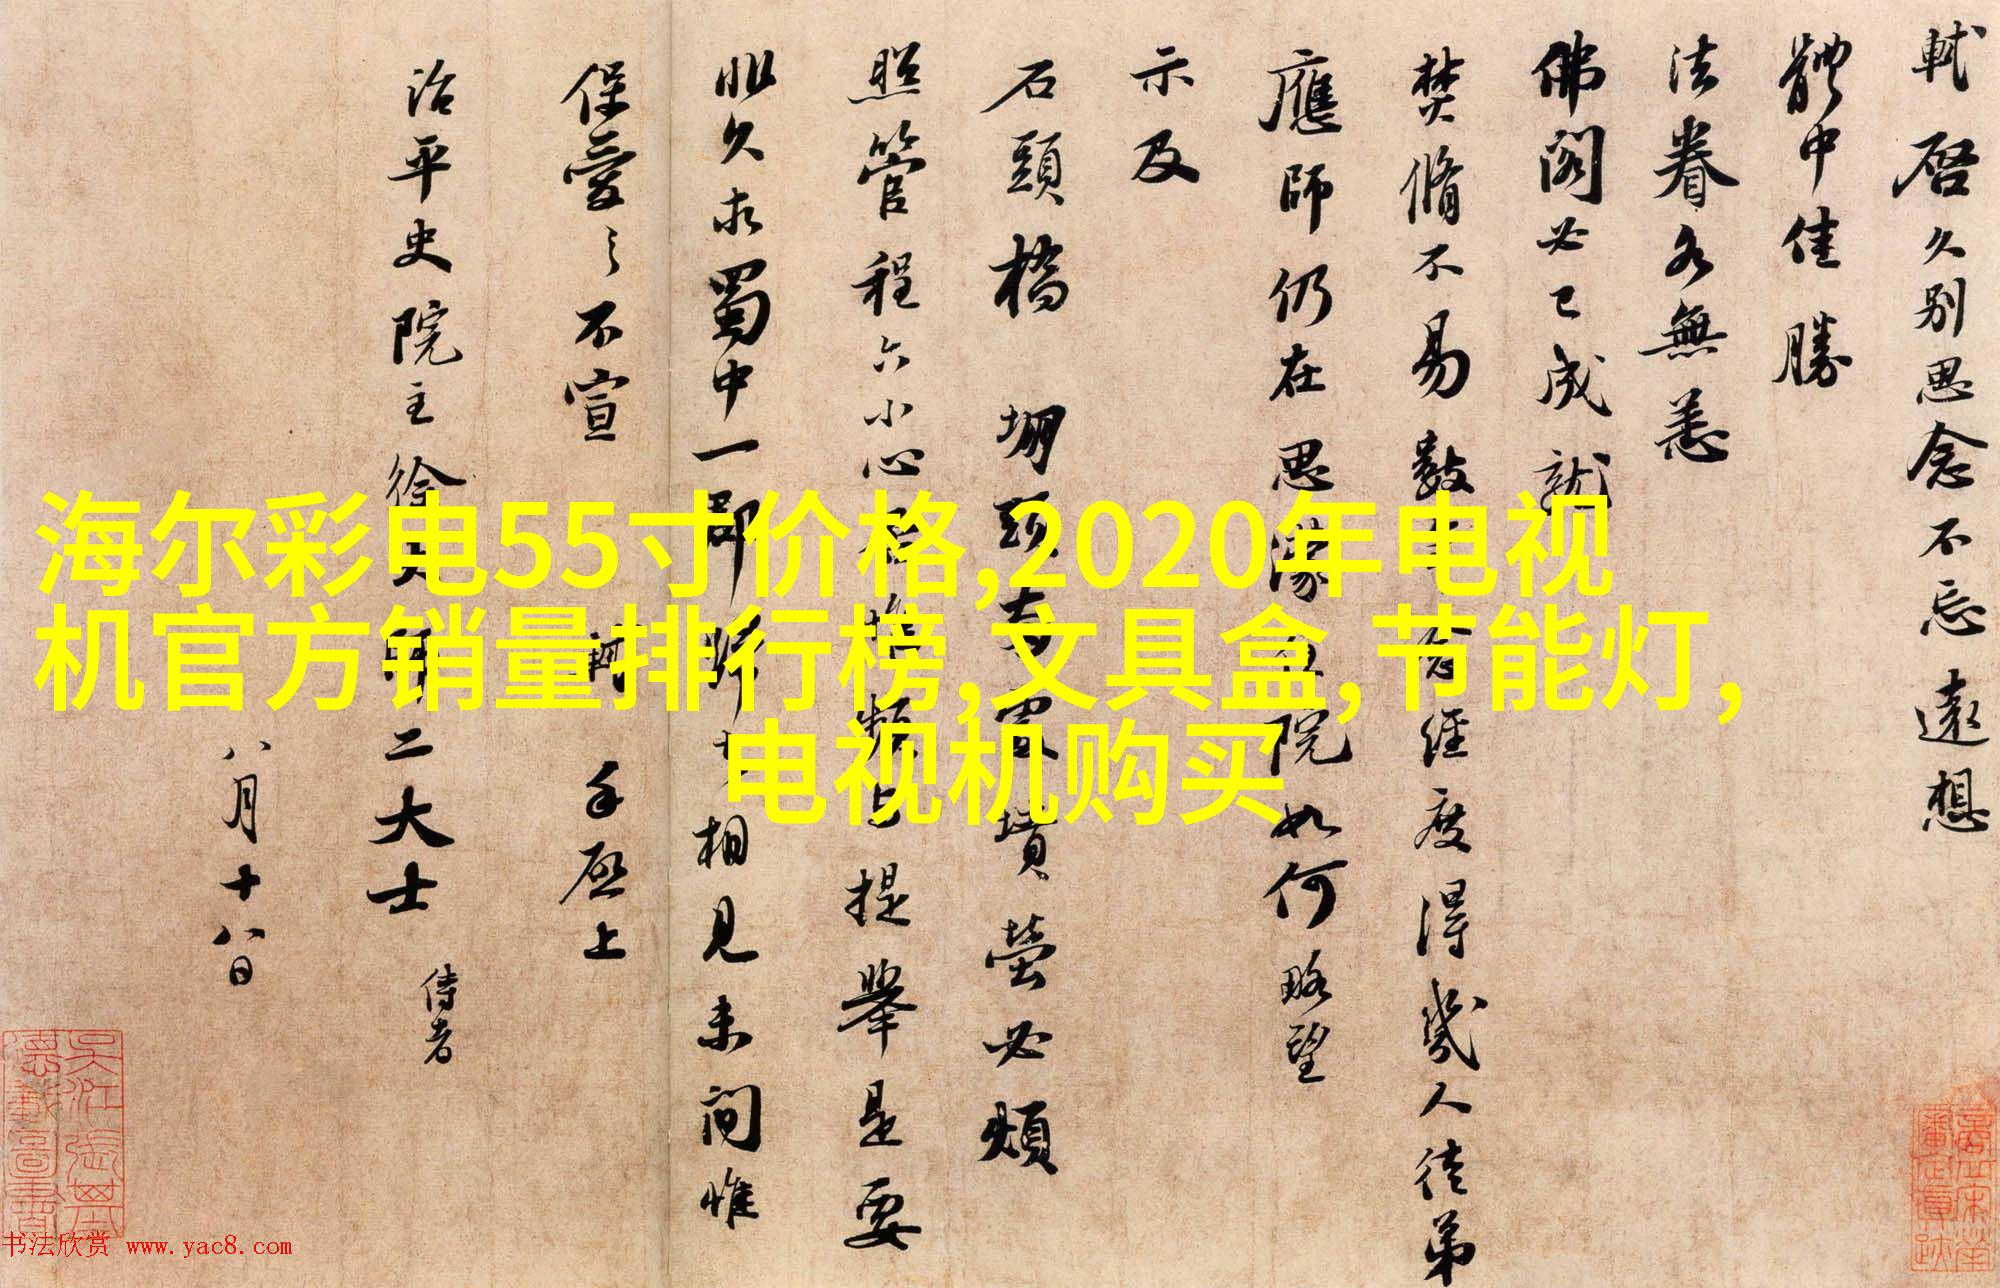 軾啓久别思念不忘遠想
體中佳勝
法眷各無恙
佛閣必已成就
焚脩不易數年念經度得幾人徒弟
應師仍在思濛住院如何略望
示及
石頭橋 堋頭两處墳塋必煩
照管程六小心否惟頻與提舉是要
非久求蜀中一郡歸去相見未間惟
保愛之不宣 軾手啓上
治平史院主徐大師二大士 侍者
八月十八日
海尔彩电55寸价格,2020年电视
机官方销量排行榜,文具盒,节能灯,
电视机购买
书法欣赏 www.yac8.com